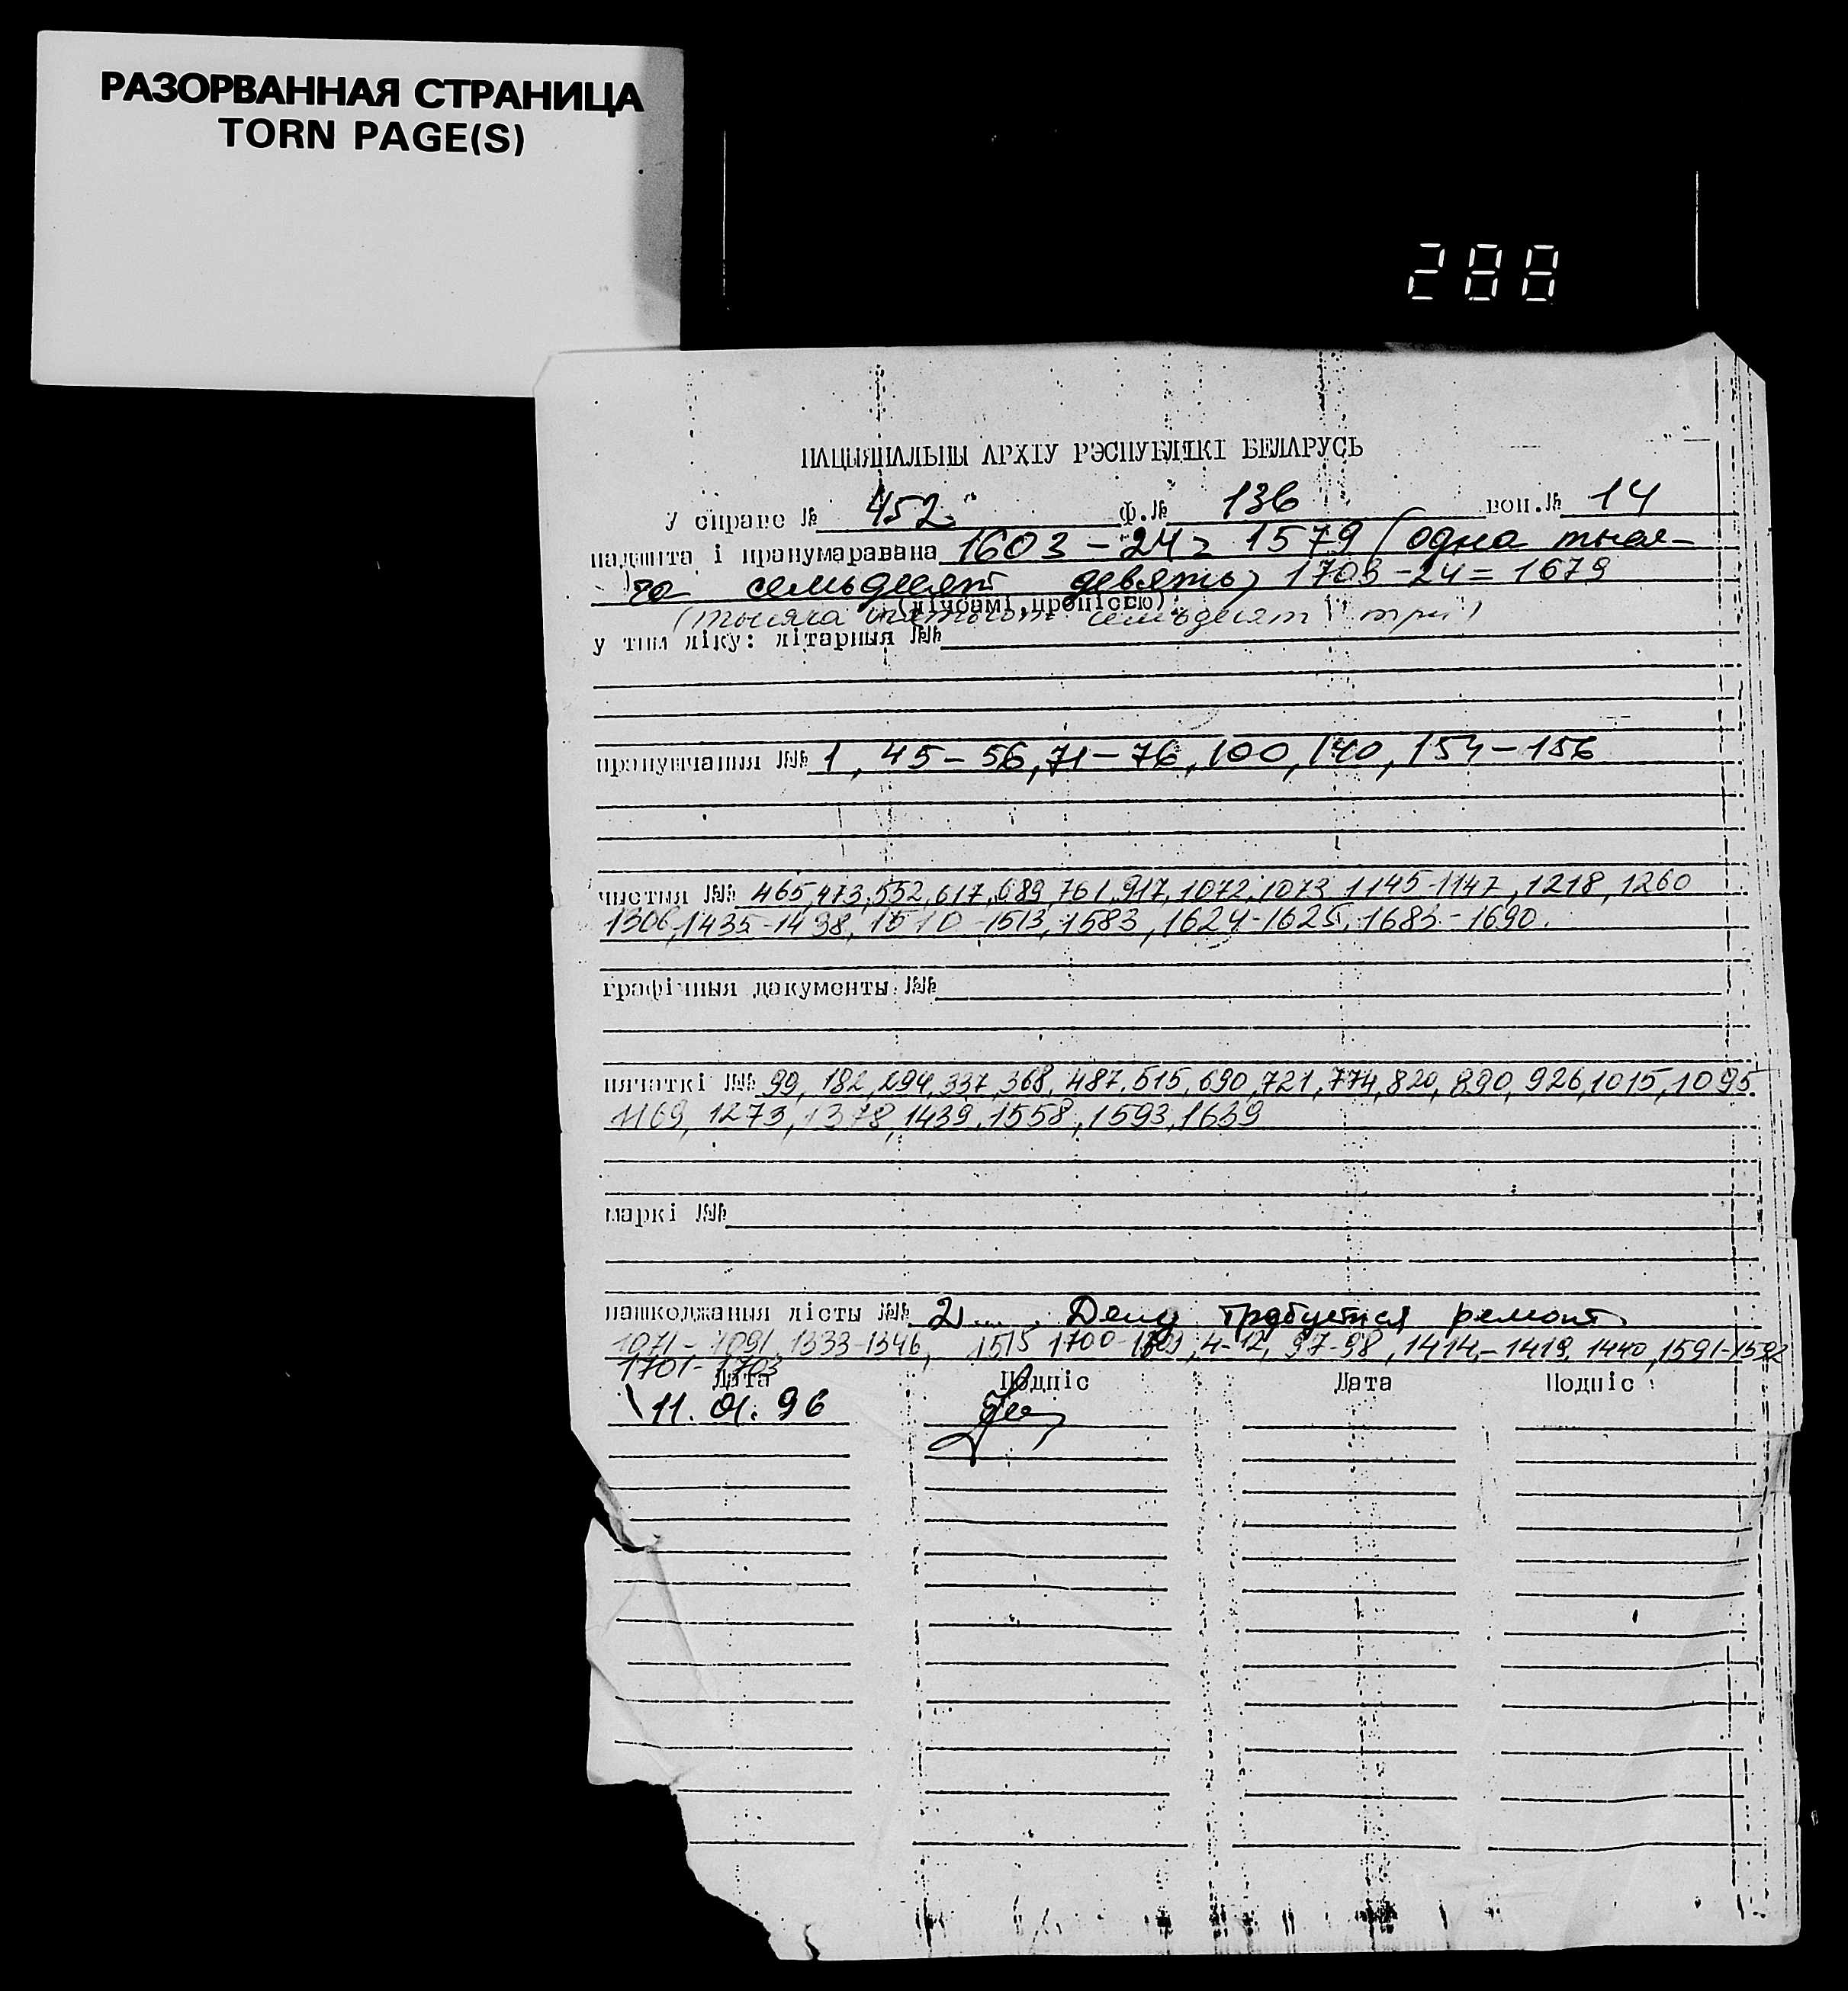 РАЗОРВАННАЯ СТРАНИЦА
TORN PAGE(S)
288
НАЦЫЯНАЛЬНЫ АРХІУ РЭСПУБЛІКІ БЕЛАРУСЬ
У справе № 452 ф.№ 136 воп.№ 14
падшита і пранумаравана 1603 - 24 = 1579 (одна тыся-
ча семьдесят девять) 1703 - 24 = 1679
(лічбамі, пропіссю)
(тысяча семьдесят три)
у тым ліку: літарныя №№
прапушчаныя №№ 1, 45 - 56, 71 - 76, 100, 140, 154 - 156
чистыя №№ 465, 473, 552, 617, 689, 761, 917, 1072, 1073, 1145-1147, 1218, 1260
1306, 1435-1438, 1510-1513, 1583, 1624-1625, 1683-1690.
графічныя дакументы №№
пячаткі №№ 99, 182, 294, 337, 368, 487, 515, 690, 721, 774, 820, 890, 926, 1015, 1095
1169, 1273, 1378, 1439, 1558, 1593, 1639
маркі №№
пашкоджаныя лісты №№ 2.... Делу требуется ремонт
1071 - 1091, 1333-1346, 1515 1700-1703, 4-12, 97-98, 1414-1419, 1440, 1591-1592
1701 - 1703
Дата Подпіс Дата Подпіс
11.01.96